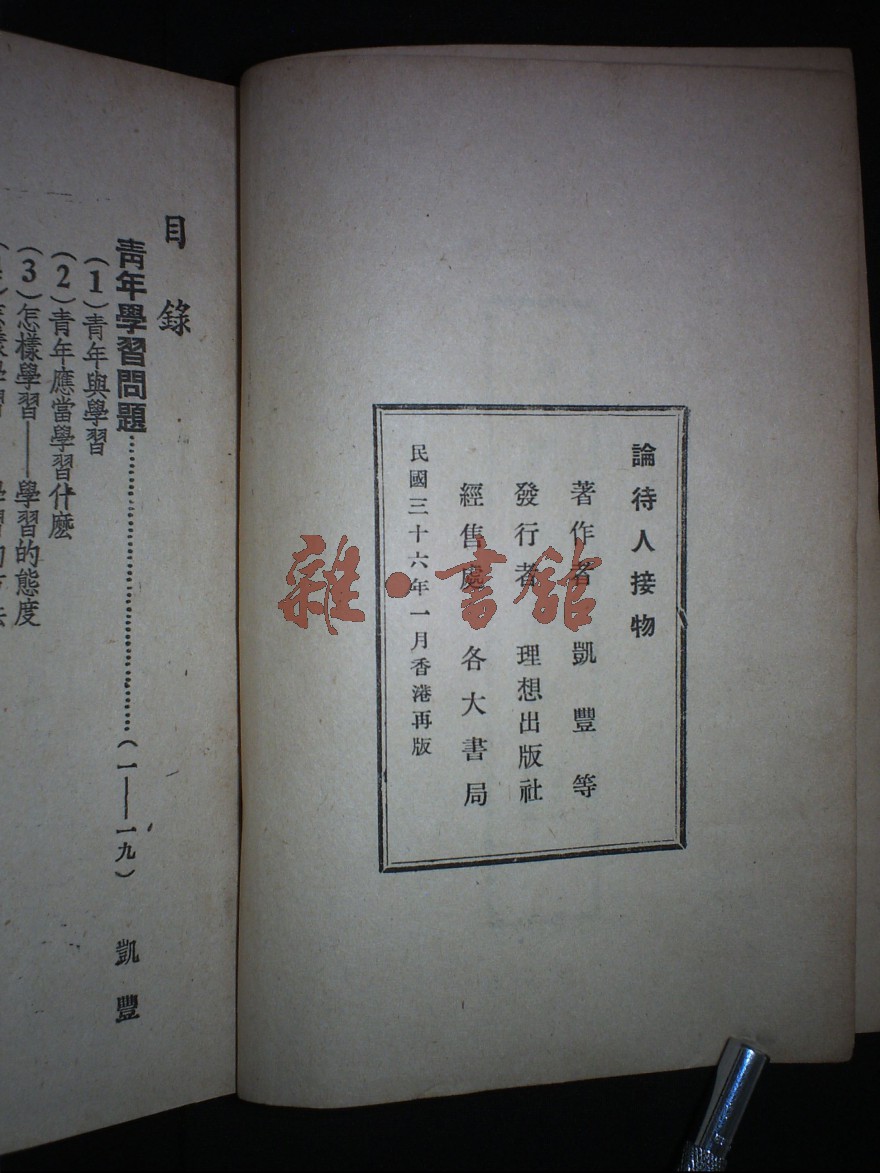 論待人接物
著作者 凱豐等
發行者 理想出版社
經售處 各大書局
民國三十六年一月香港再版
目錄
青年學習問題……(一——一九) 凱豐
(1)青年與學習
(2)青年應當學習什麽
(3)怎樣學習——學習的態度
雜·書館